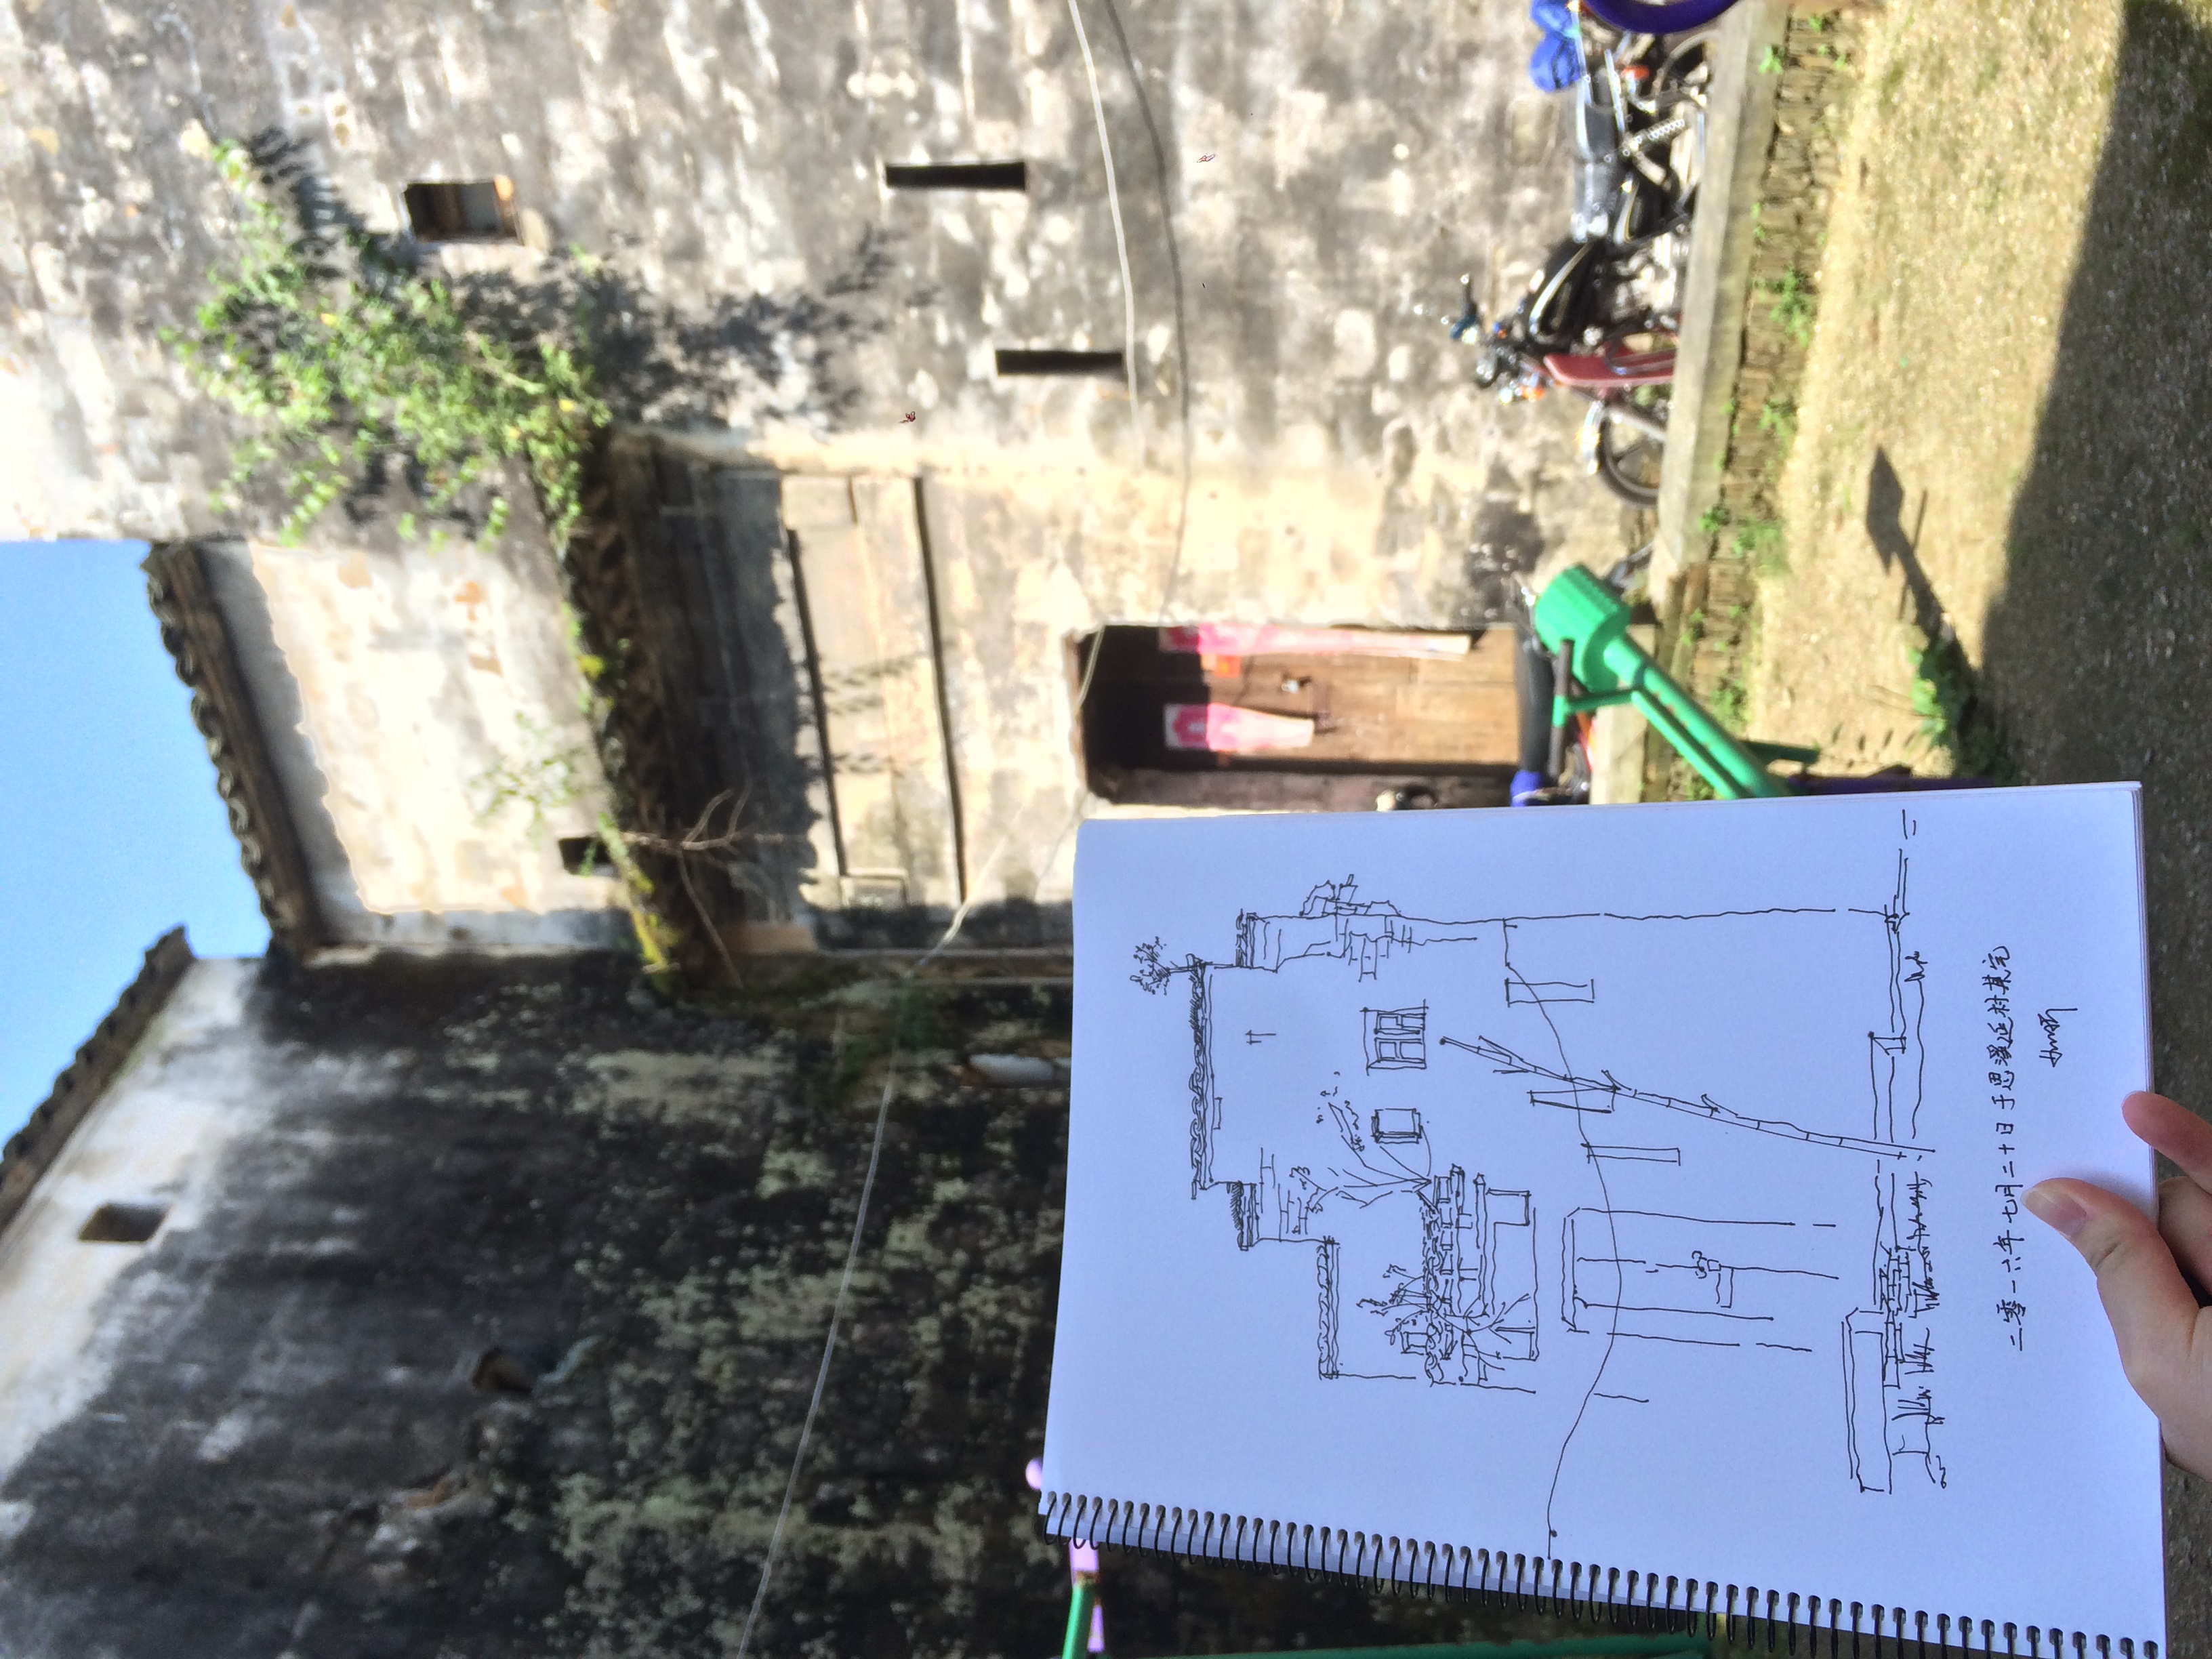 二零一六年七月二十日于思溪延村某宅